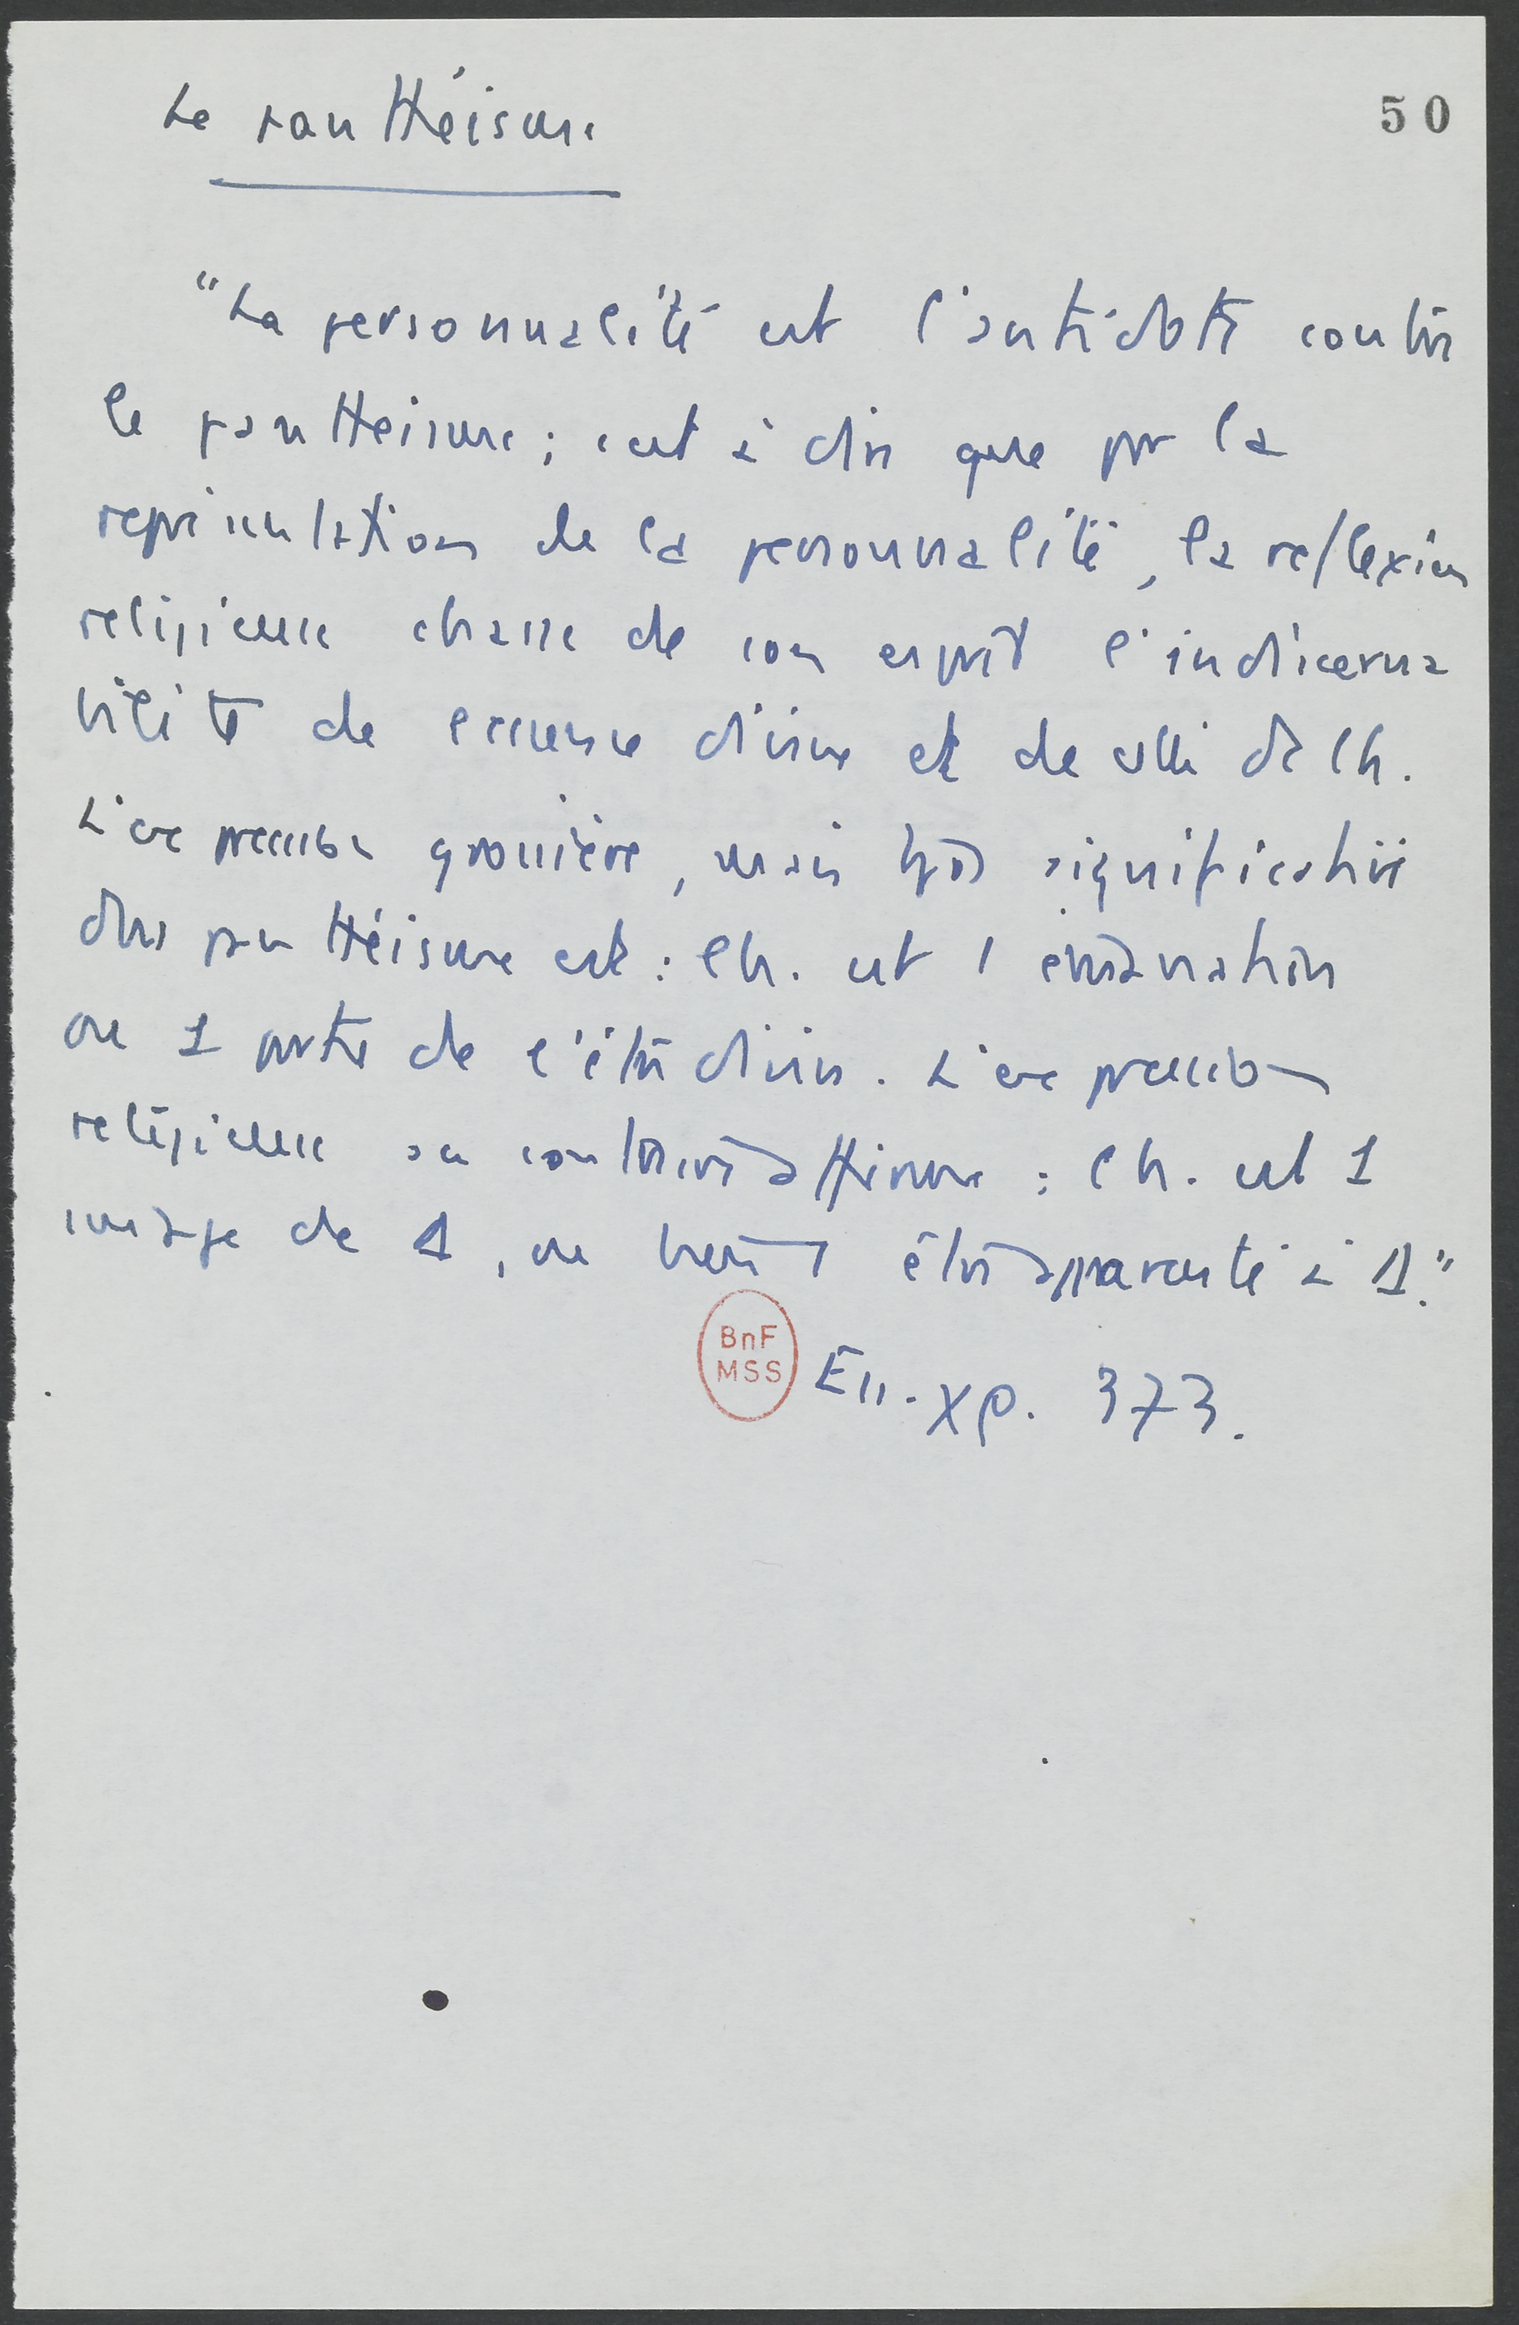 50
Le panthéisme
"La personnalité est l'antidote contre
le panthéisme ; c'est à dire que par la
représentation de la personnalité, la réflexion
religieuse chasse de son esprit l'indiscerna
bilité de l'essence divine et de celle de l'h.
L'expression grossière, mais très significative
du panthéisme est : l'h. est 1 émanation
ou 1 partie de l'être divin. L'expression
religieuse au contraire affirme : l'h. est 1
image de Δ, ou bien 1 être apparenté à Δ."
BnF
MSS
Ess. χρ. 373.